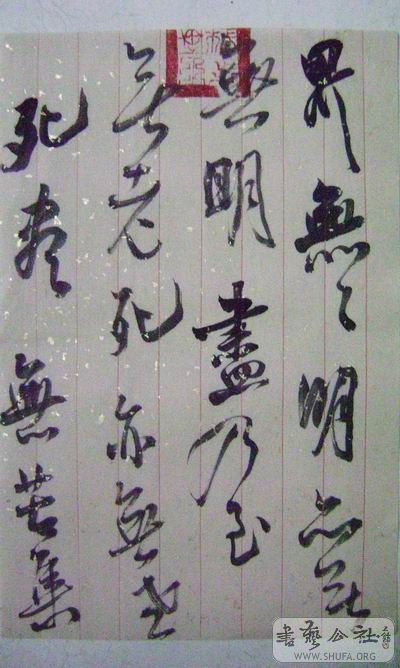 界無々明亦无
無明盡乃至
无老死亦無老
死盡無苦集
書藝公社
WWW.SHUFA.ORG